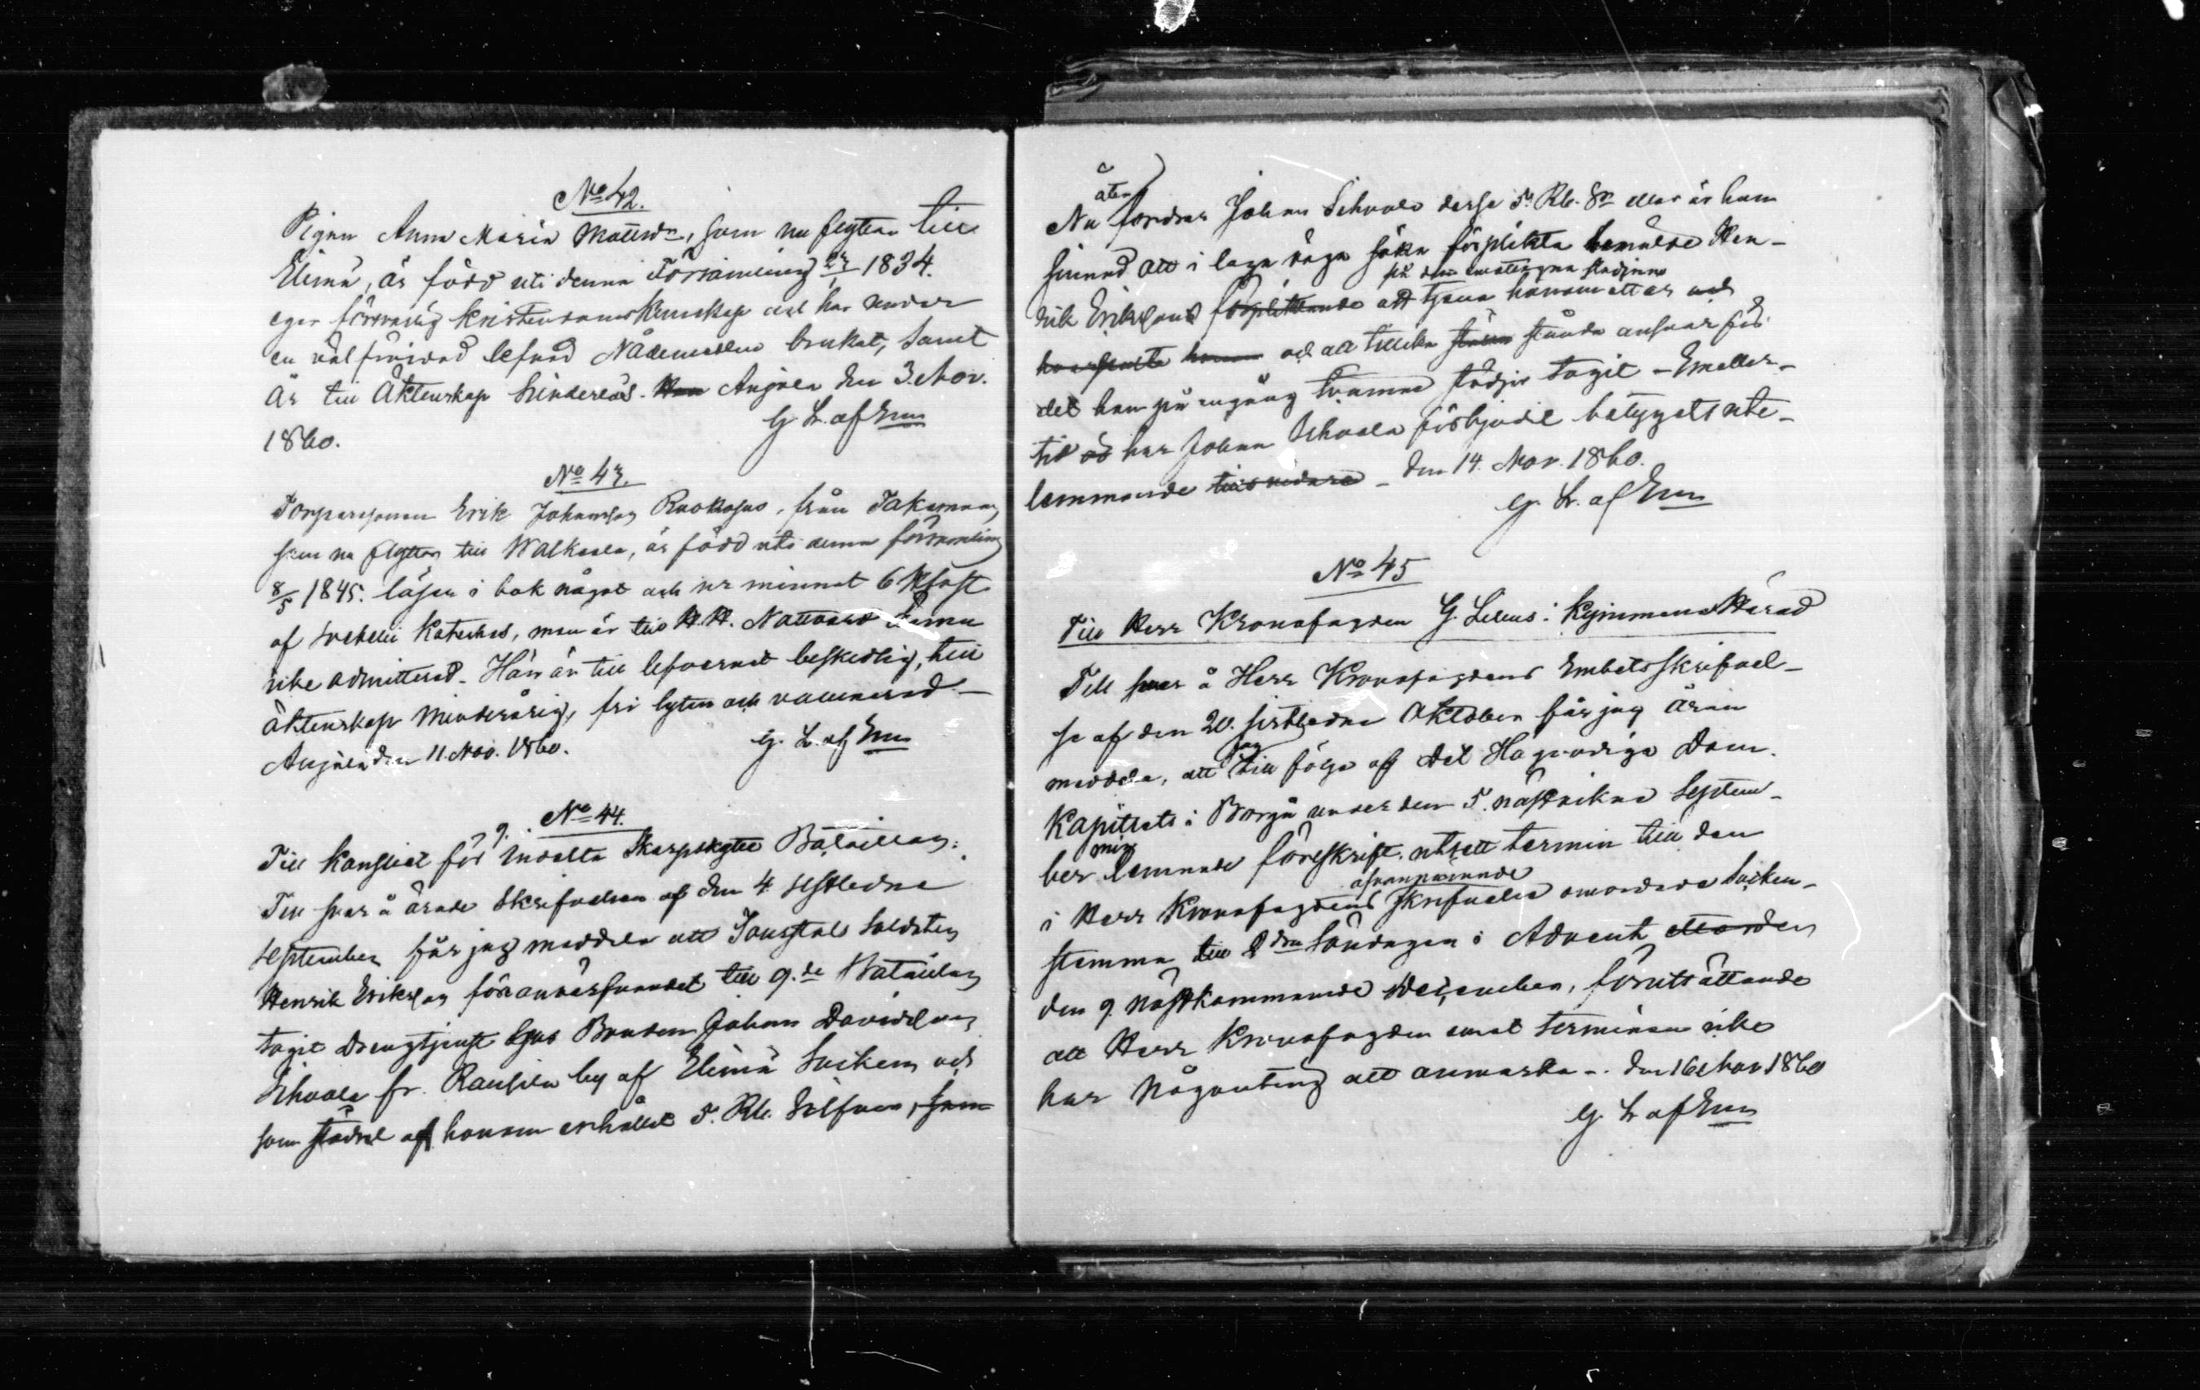 No 42.
Pigan Anna Maria Mattsdr, som nu flyttar till
Elimä, är född uti denna Församling 1834.
eger försvarlig kristendomskunskap och har under
en väl frejdad lefnad Nådemedlen brukat, samt
är till Äktenskap hinderlös. Anjala den 3. Nov.
1860.
G. L. af Enn
No 43.
Torparesonen Erik Johansson Ruokojus, från Takamaa,
som nu flyttar till Walkeala, är född uti denna församling
8/5 1845. läser i bok något och ur minnet 6 st
af Svebelii Kateches, men är till H. H. Nattvard
icke admitterad. Han är till lefvernet beskedlig, till
äktenskap minderårig, fri lyten och vaccinerad –
Anjala den 11. Nov. 1860.
G. L. af Enn
No 44.
Till Kansliet för 9. Indelta Skarpskytte Bataillon:
Till svar å ärade Skrifvelsen af den 4 sistledne
September får jag meddela att Soldaten
Henrik Eriksson före anvärfvandet till 9.de Bataillon
tagit Drengtjenst hos Bonden Johan Davidsson
Sihvola fr. Raussila by af Elimä Sucken och
som städsel af honom erhållit 5. Rb. Silfver, som
Nu återfordrar Johan Sihvola dessa 5. Rb. Sr eller är han
sinnad att i laga väga söka förplikta bemälde Hen-
rik Eriksson förpliktande på den emottagna städjan att tjena honom ett år och
och att tillika stånda ansvar för
det han på engång tvenne städjor tagit – Emeller-
tid har Johan Sihvola förbjudit betygets ute-
lemnande tills vidare – den 14. Nov. 1860.
G. L. af Enn
No 45
Till Herr Kronofogden G. Lilius i Kymmene Härad
Till svar å Herr Kronofogdens Embetsskrifvel-
se af den 20. sistledne Oktober får jag äran
meddela, att jag till följe af Det Högvördiga Dom-
Kapitlets i Borgå under den 5. nästvikne Septem-
ber mig lemnade föreskrift, utsatt termin till den
i Herr Kronofogdens åfvannämnde skrifvelse omordade Sucken-
stemma till 2dra Söndagen i Advent eller den
den 9. nästkommande December, förutsättande
att Herr Kronofogden emot terminen icke
har någonting att anmärka –. den 16 Nov 1860
G. L. af Enn